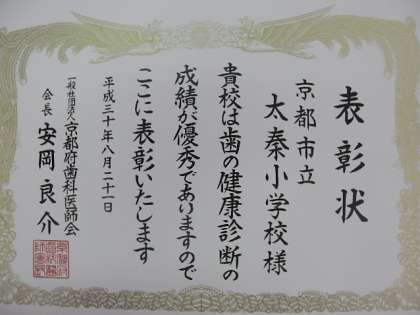 表彰状
京都市立
太秦小学校様
貴校は歯の健康診断の
成績が優秀でありますので
ここに表彰いたします
平成三十年八月二十一日
一般社団法人京都府歯科医師会
会長 安岡良介